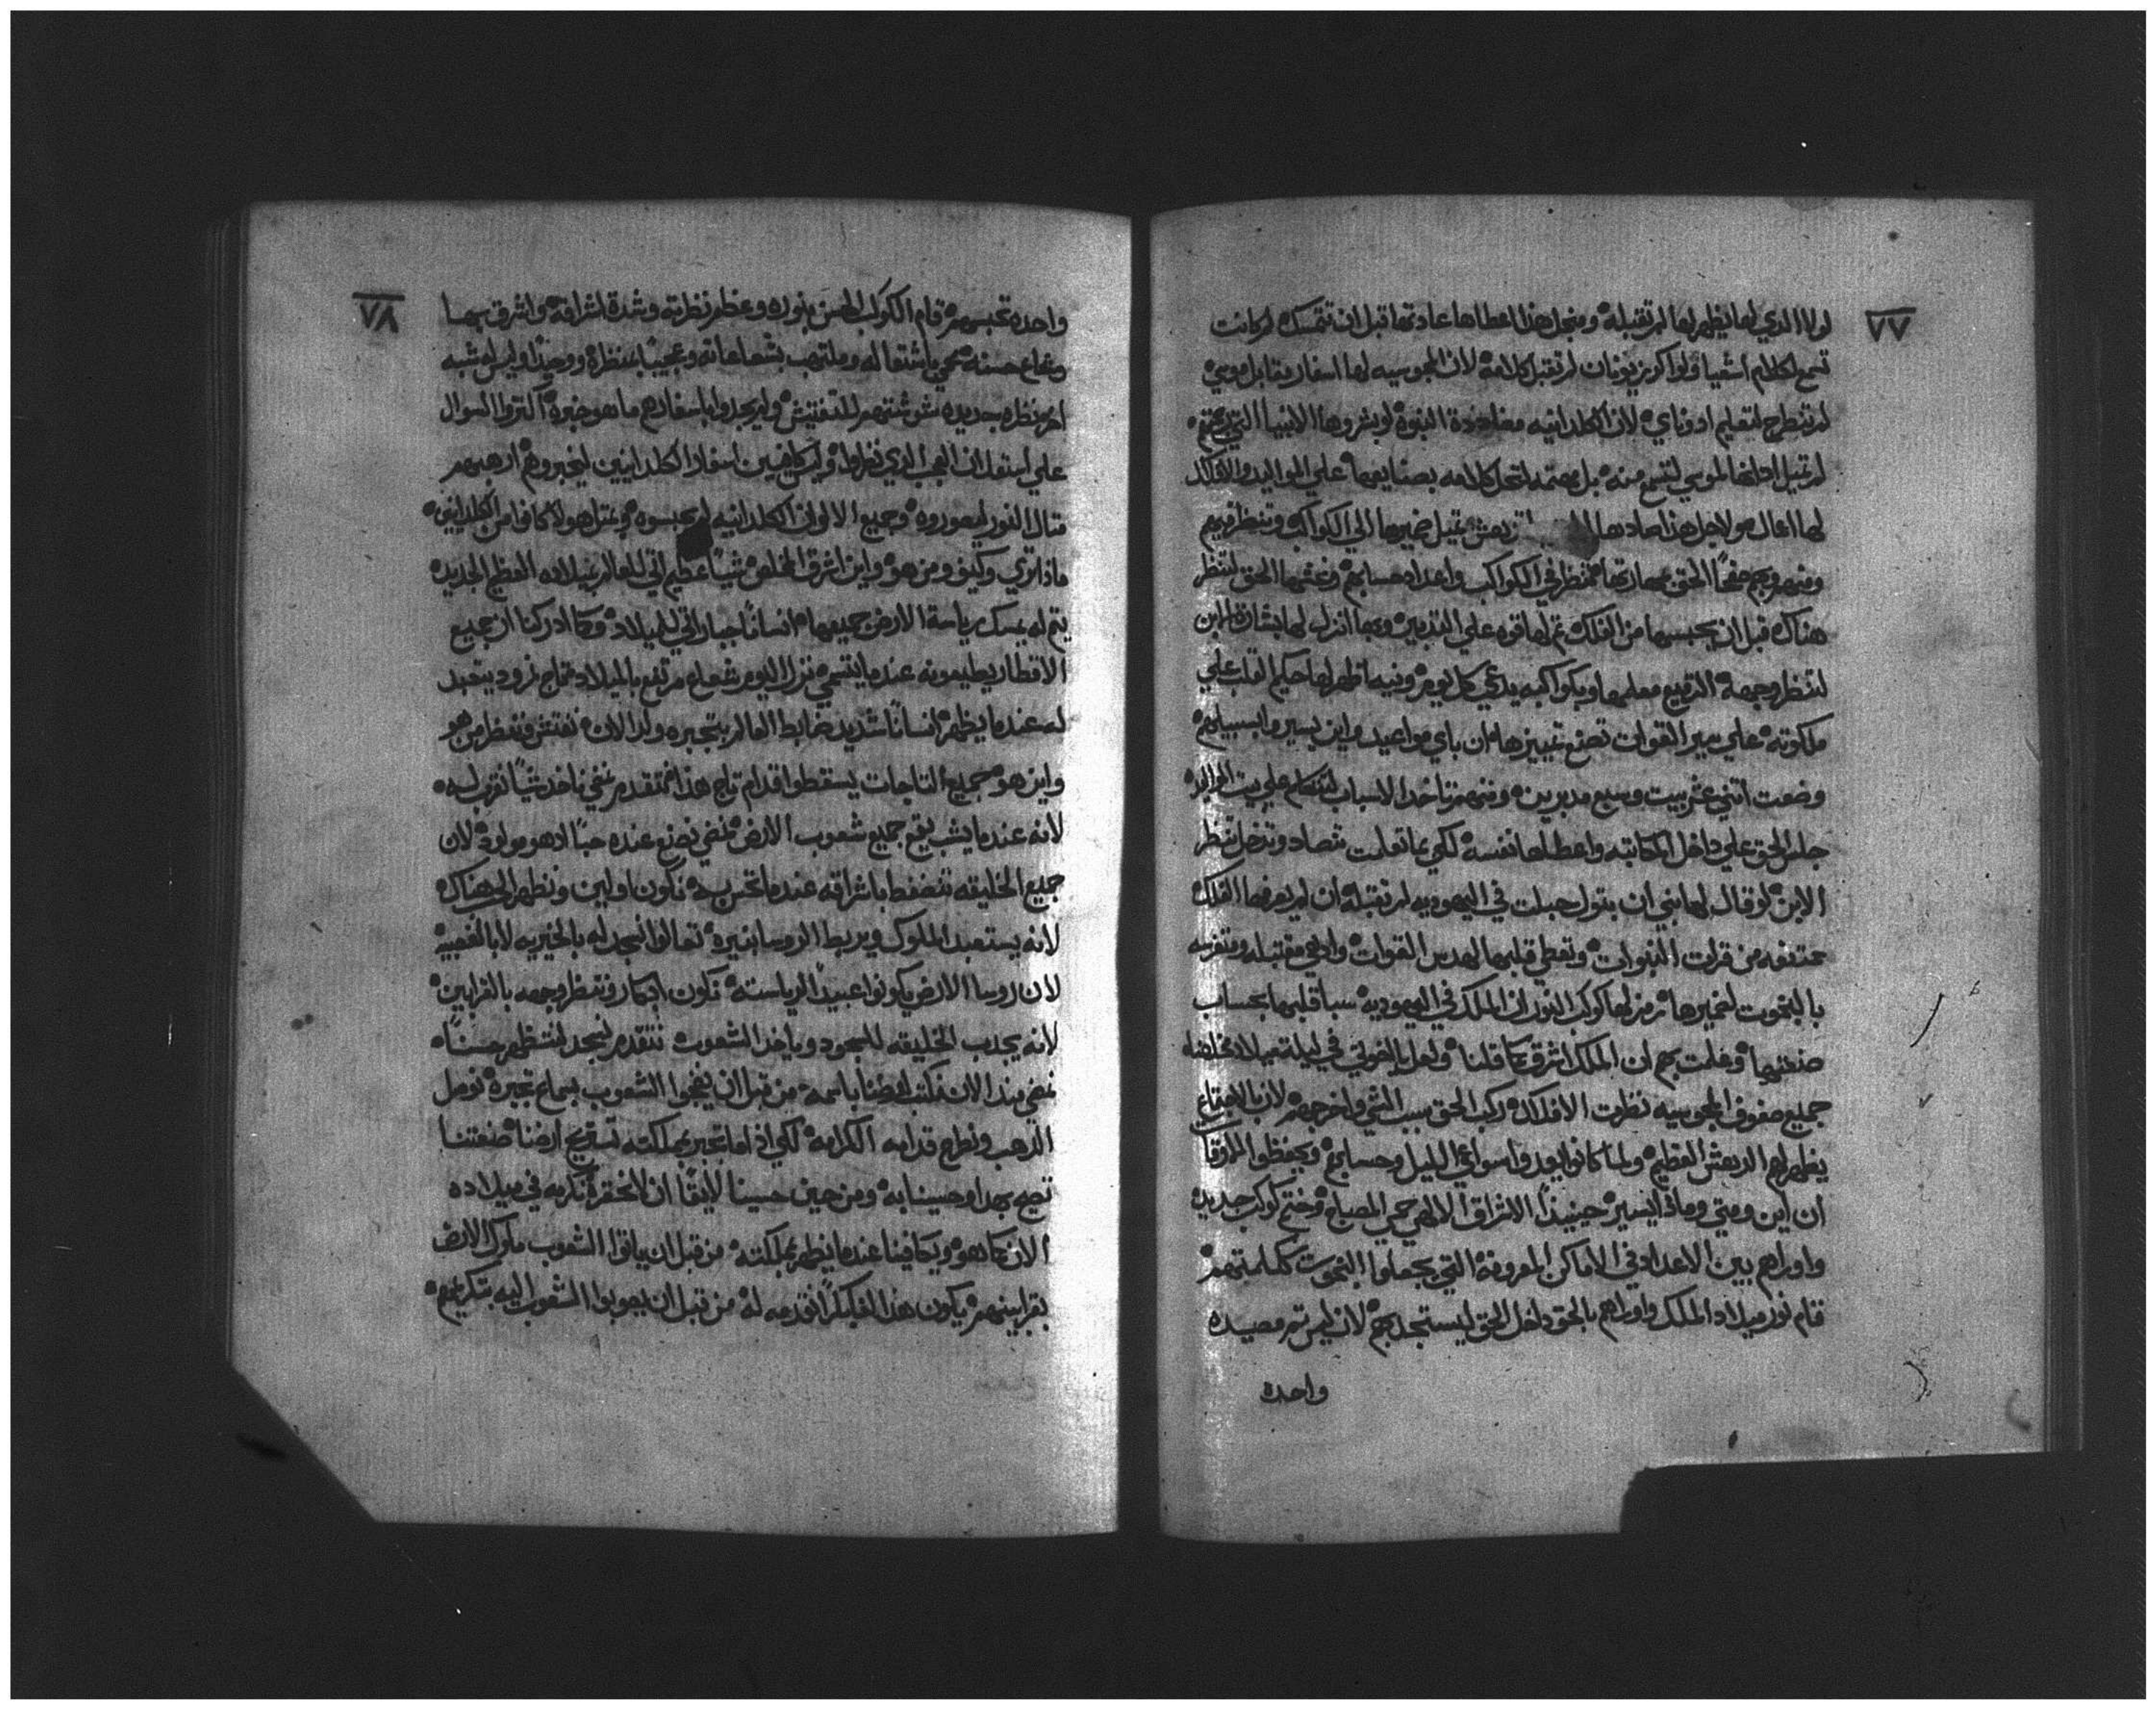 ٧٧
لولا الذي لها يظهر لها لم تقبله ومنجل هذا اعطاها عادتها قبل ان تتمسك لو كانت
تسمع لكلام اشعيا ولو اكرز يونان لم تقبل كلامه لان المجوسيه لها اسفار مقابل موسي
لم تنطرح لتعليم ادوناي لان الكلدانيه مضاددة النبوة لو بشروها الانبيا التي
لم تميل ادنها لموسي لتسمع منه بل معتمد لتحل كلامه بصنايعها علي المواليد والافلاك
لها اعمال مولاجل هذا صادها تميل ضميرها الي الكواكب وتنظر فيهم
ومنهم الحق مهارتها تنظر في الكواكب واعداد حسابهم الحق لتنظر
هناك قبل ان يحبسها من الفلك لها قوه علي التدبير وبما انزل لها بشارة الابن
لتنظر وجهه معلمها وبكواكبه يدعي كل يوم ونبيه اظهر لها حكيم القلب علي
ملكوته علي سير القوات تصنع تمييزها ان باي مواعيد واين يسيروا بسبيلهم
وضعت اثني عشر بيت وسبع مدبرين ومنهم تاخد الاسباب لتتكلم علي بيت المواليد
جلس الحق علي داخل الكتابه واعطاها نفسه لكي بما تعلمت تتصاد وتدخل تنظر
الابن لو قال لها نبي ان بتول حبلت في اليهوديه لم تقبله ان لم يعرفها الفلك
ممتنعه من قرات النبوات وتعطي قلبها لهدس القوات
بالبخوت لضميرها رمز لها كوكب النور ان الملك في اليهوديه سبا قلبها بحساب
صنعتها وعلمت بهم ان الملك اشرق كما قلنا في ليلة ميلاد مخلصنا
جميع صفوف المجوسيه نظرت الافلاك ركب الحق سبب الشي واخرجهم لان بالاجتماع
يظهر لهم الدهش العظيم ولما كانوا يعدوا سواعي الليل وحسابهم ويحفظوا الاوقات
ان اين ومتي وماذا يسير حينيذ الاشراق الالهي حمي المصباح وفتح كوكب جديد
واوراهم بين الاعداد في الاماكن المعروفة التي يجعلوا البخوت كعلمتهم
قام نور ميلاد الملك واوراهم بالحق داخل الحق ليستجد بهم لان ليس تم مصيده
واحده
٧٨
واحده تحبسهم قام الكوكب الحسن بنوره وعظم نظرته وشدة اشراقه واشرق بهما
وشعاع حسنه حمي باشتعاله وملتهب بشعاعاته وعجيبا بمنظره ووحيدا وليس له شبه
امر نظره جديده شوشتهم للتفتيش ولم يجدوا باسفارهم ما هو خبره اكتروا السوال
علي استعلان العجب الذي نظروا ولم كافيين اسفار الكلدانيين ليخبروهم ارهبهم
متال النور ليصوروه وجميع الالوان الكلدانيه لم يحبسوه ومتل هولا كانوا من الكلدانيين
ماذا تري وكيف ومن هو واين اشرق المخلص شيا عظيم اتي للعالم بميلاده العظيم الجديد
يتم له يمسك رياسة الارض جميعها انسانا جبار اتي للميلاد وكما ادركنا ان جميع
الاقطار يطيعونه عندما ينتسمي نزل اليوم شعاع مرتفع بالميلاد تاج نمرود يتعبد
له عندما يظهر انسانا شديد ضابط العالم بتجبره ولد الان نفتش وننظر من هو
واين هو جميع التاجات يسقطوا قدام تاج هذا فنتقدم نمضي ناخد شيا نقرب له
لانه عندما يشب يتبع جميع شعوب الارض فنمضي نصنع عنده حبا ادهو مولود لان
جميع الخليقه تنضغط باشراقه عندما نكون اولين ونظهر الي هناك
لانه يستعبد الملوك ويربط الروسا بنيره تعالوا نسجد له بالخيريه لا بالغصبيه
لان روسا الارض يكونوا عبيدا لرياسته نكون ابكار وننظر وجهه بالقرابين
لانه يجذب الخليقه للسجود وياخد الشعوب نتقدم نسجد لننظر حسنا
نمضي منذ الان نكتب لفظنا باسمه من قبل ان يفجي الشعوب بسماع تجبره نوصل
الذهب ونطرح قدامه الكرامه لكي اذا ما تجبر بمملكته تستريح ارضنا صنعتنا
تصيح بهدا وحسينا به ومن حين حسينا لايقا ان لا نحقره نكرمه في ميلاده
الان كما هو ويكافينا عندما يظهر بمملكته من قبل ان ياتوا الشعوب ملوك الارض
بقرابينهم يكون هذا لنا بكرا نقدمه له من قبل ان يجوبوا الشعوب اليه بتكريمهم